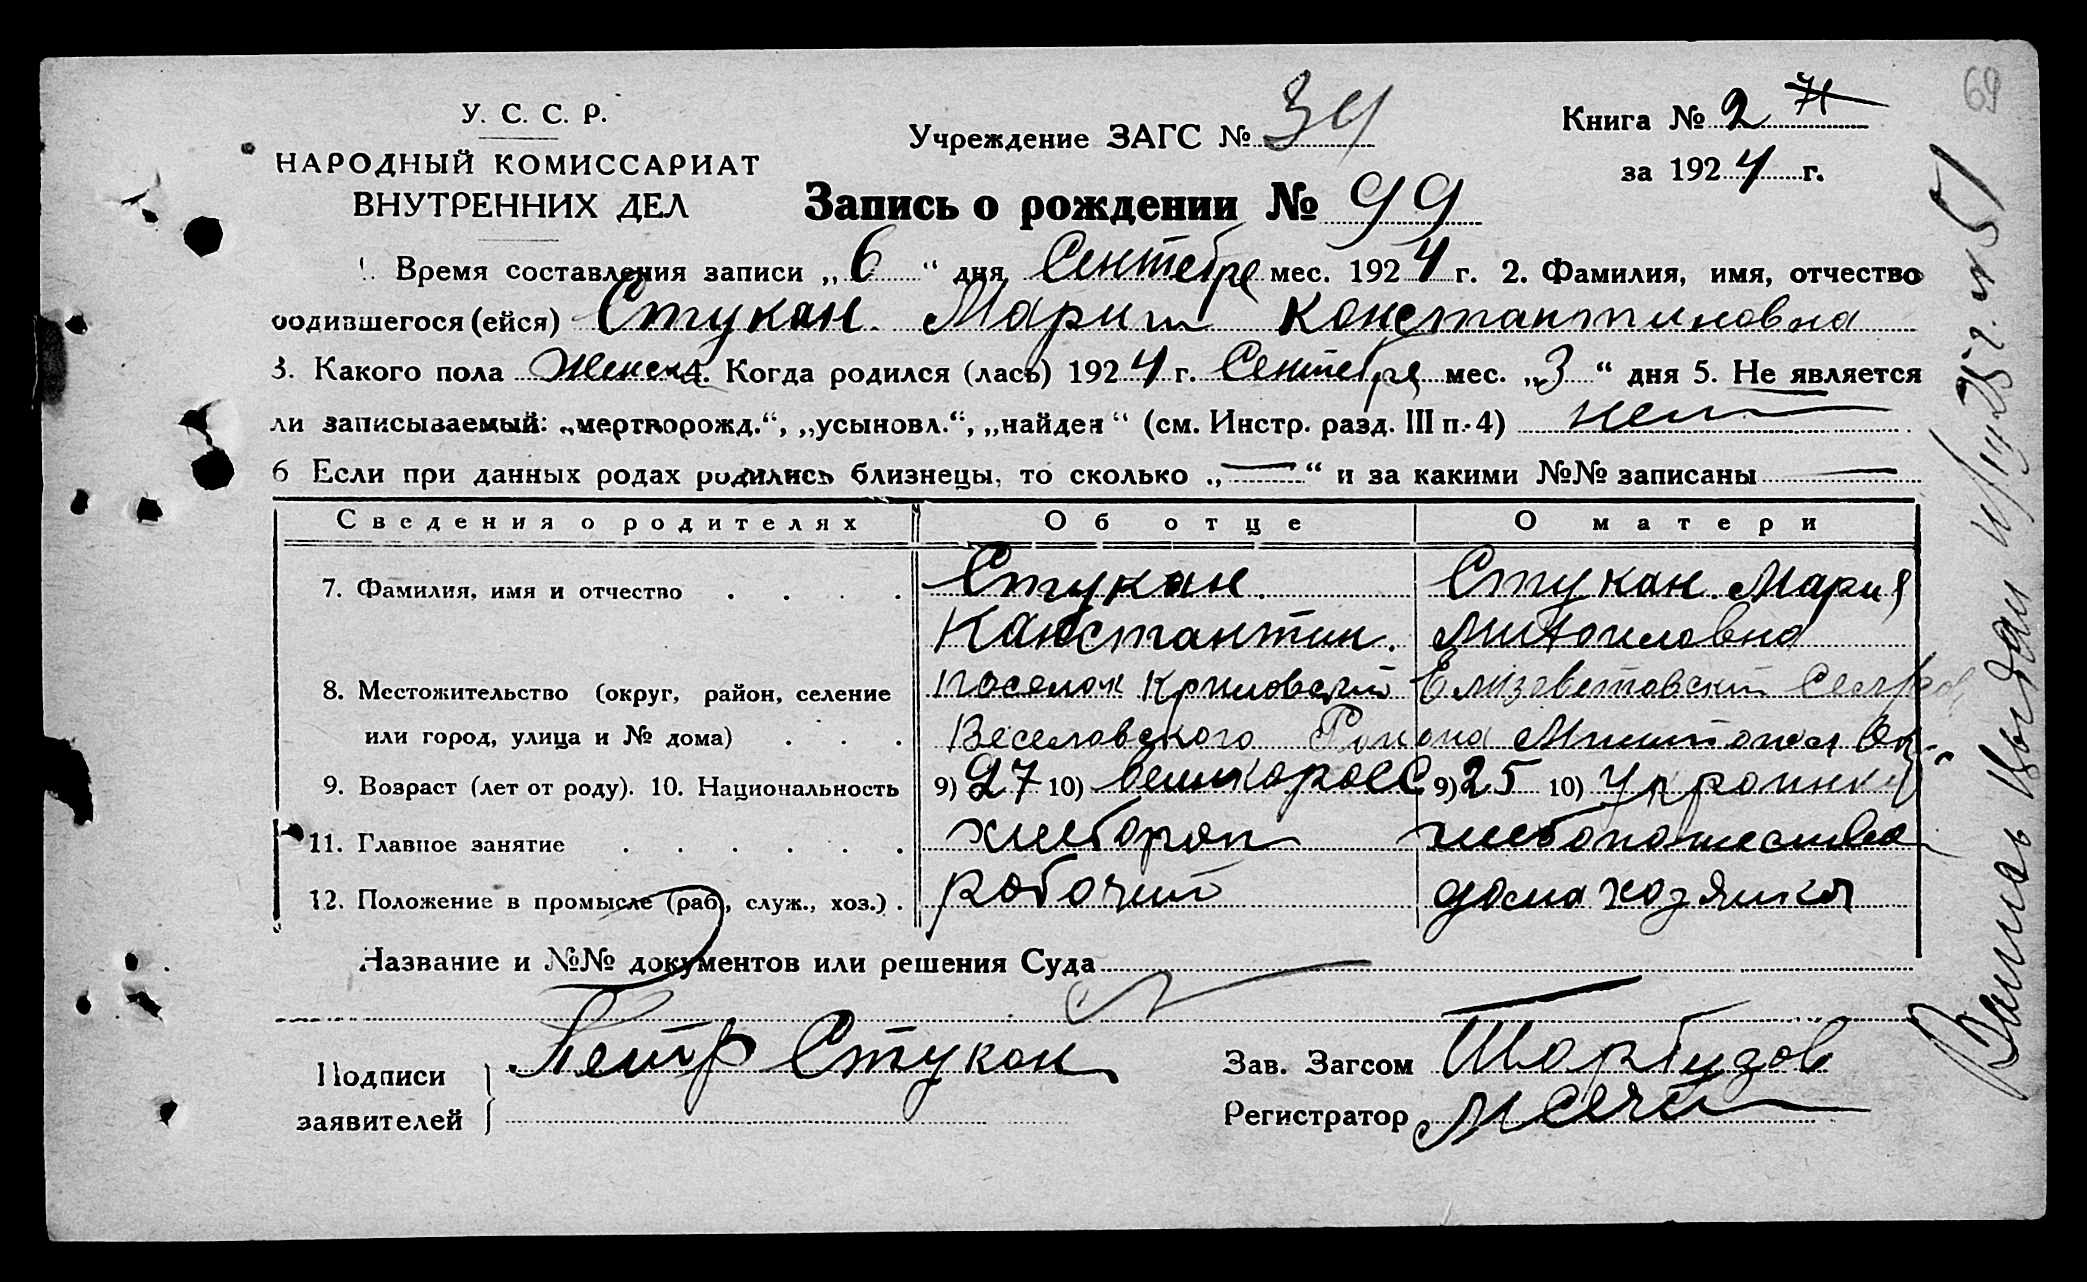 69
У. С. С. Р.
НАРОДНЫЙ КОМИССАРИАТ
ВНУТРЕННИХ ДЕЛ
Учреждение ЗАГС № 34
Книга № 2
за 1924 г.
Запись о рождении № 99
1. Время составления записи „6“ дня Сентебре мес. 1924 г. 2. Фамилия, имя, отчество
родившегося (ейся) Стукан Мария Константиновна
3. Какого пола Женск 4. Когда родился (лась) 1924 г. Сентебре мес. „3“ дня 5. Не является
ли записываемый: „мертворожд.“, „усыновл.“, „найден“ (см. Инстр. разд. III п. 4) нет
6 Если при данных родах родились близнецы, то сколько „—“ и за какими №№ записаны —
Сведения о родителях Об отце О матери
7. Фамилия, имя и отчество . . . . Стукан. Стукан. Мария
Константин.
8. Местожительство (округ, район, селение поселок Елизаветовский
или город, улица и № дома) . . . Веселовского
9. Возраст (лет от роду). 10. Национальность 9) 27 10) великоросс 9) 25 10)
11. Главное занятие . . . . . . хлебороп хлебопошества
12. Положение в промысле (раб., служ., хоз.) . рабочий дома хозяйка
Название и №№ документов или решения Суда
Подписи
заявителей
Петр Стукан
Зав. Загсом
Регистратор
Выдан 25 г. № 51